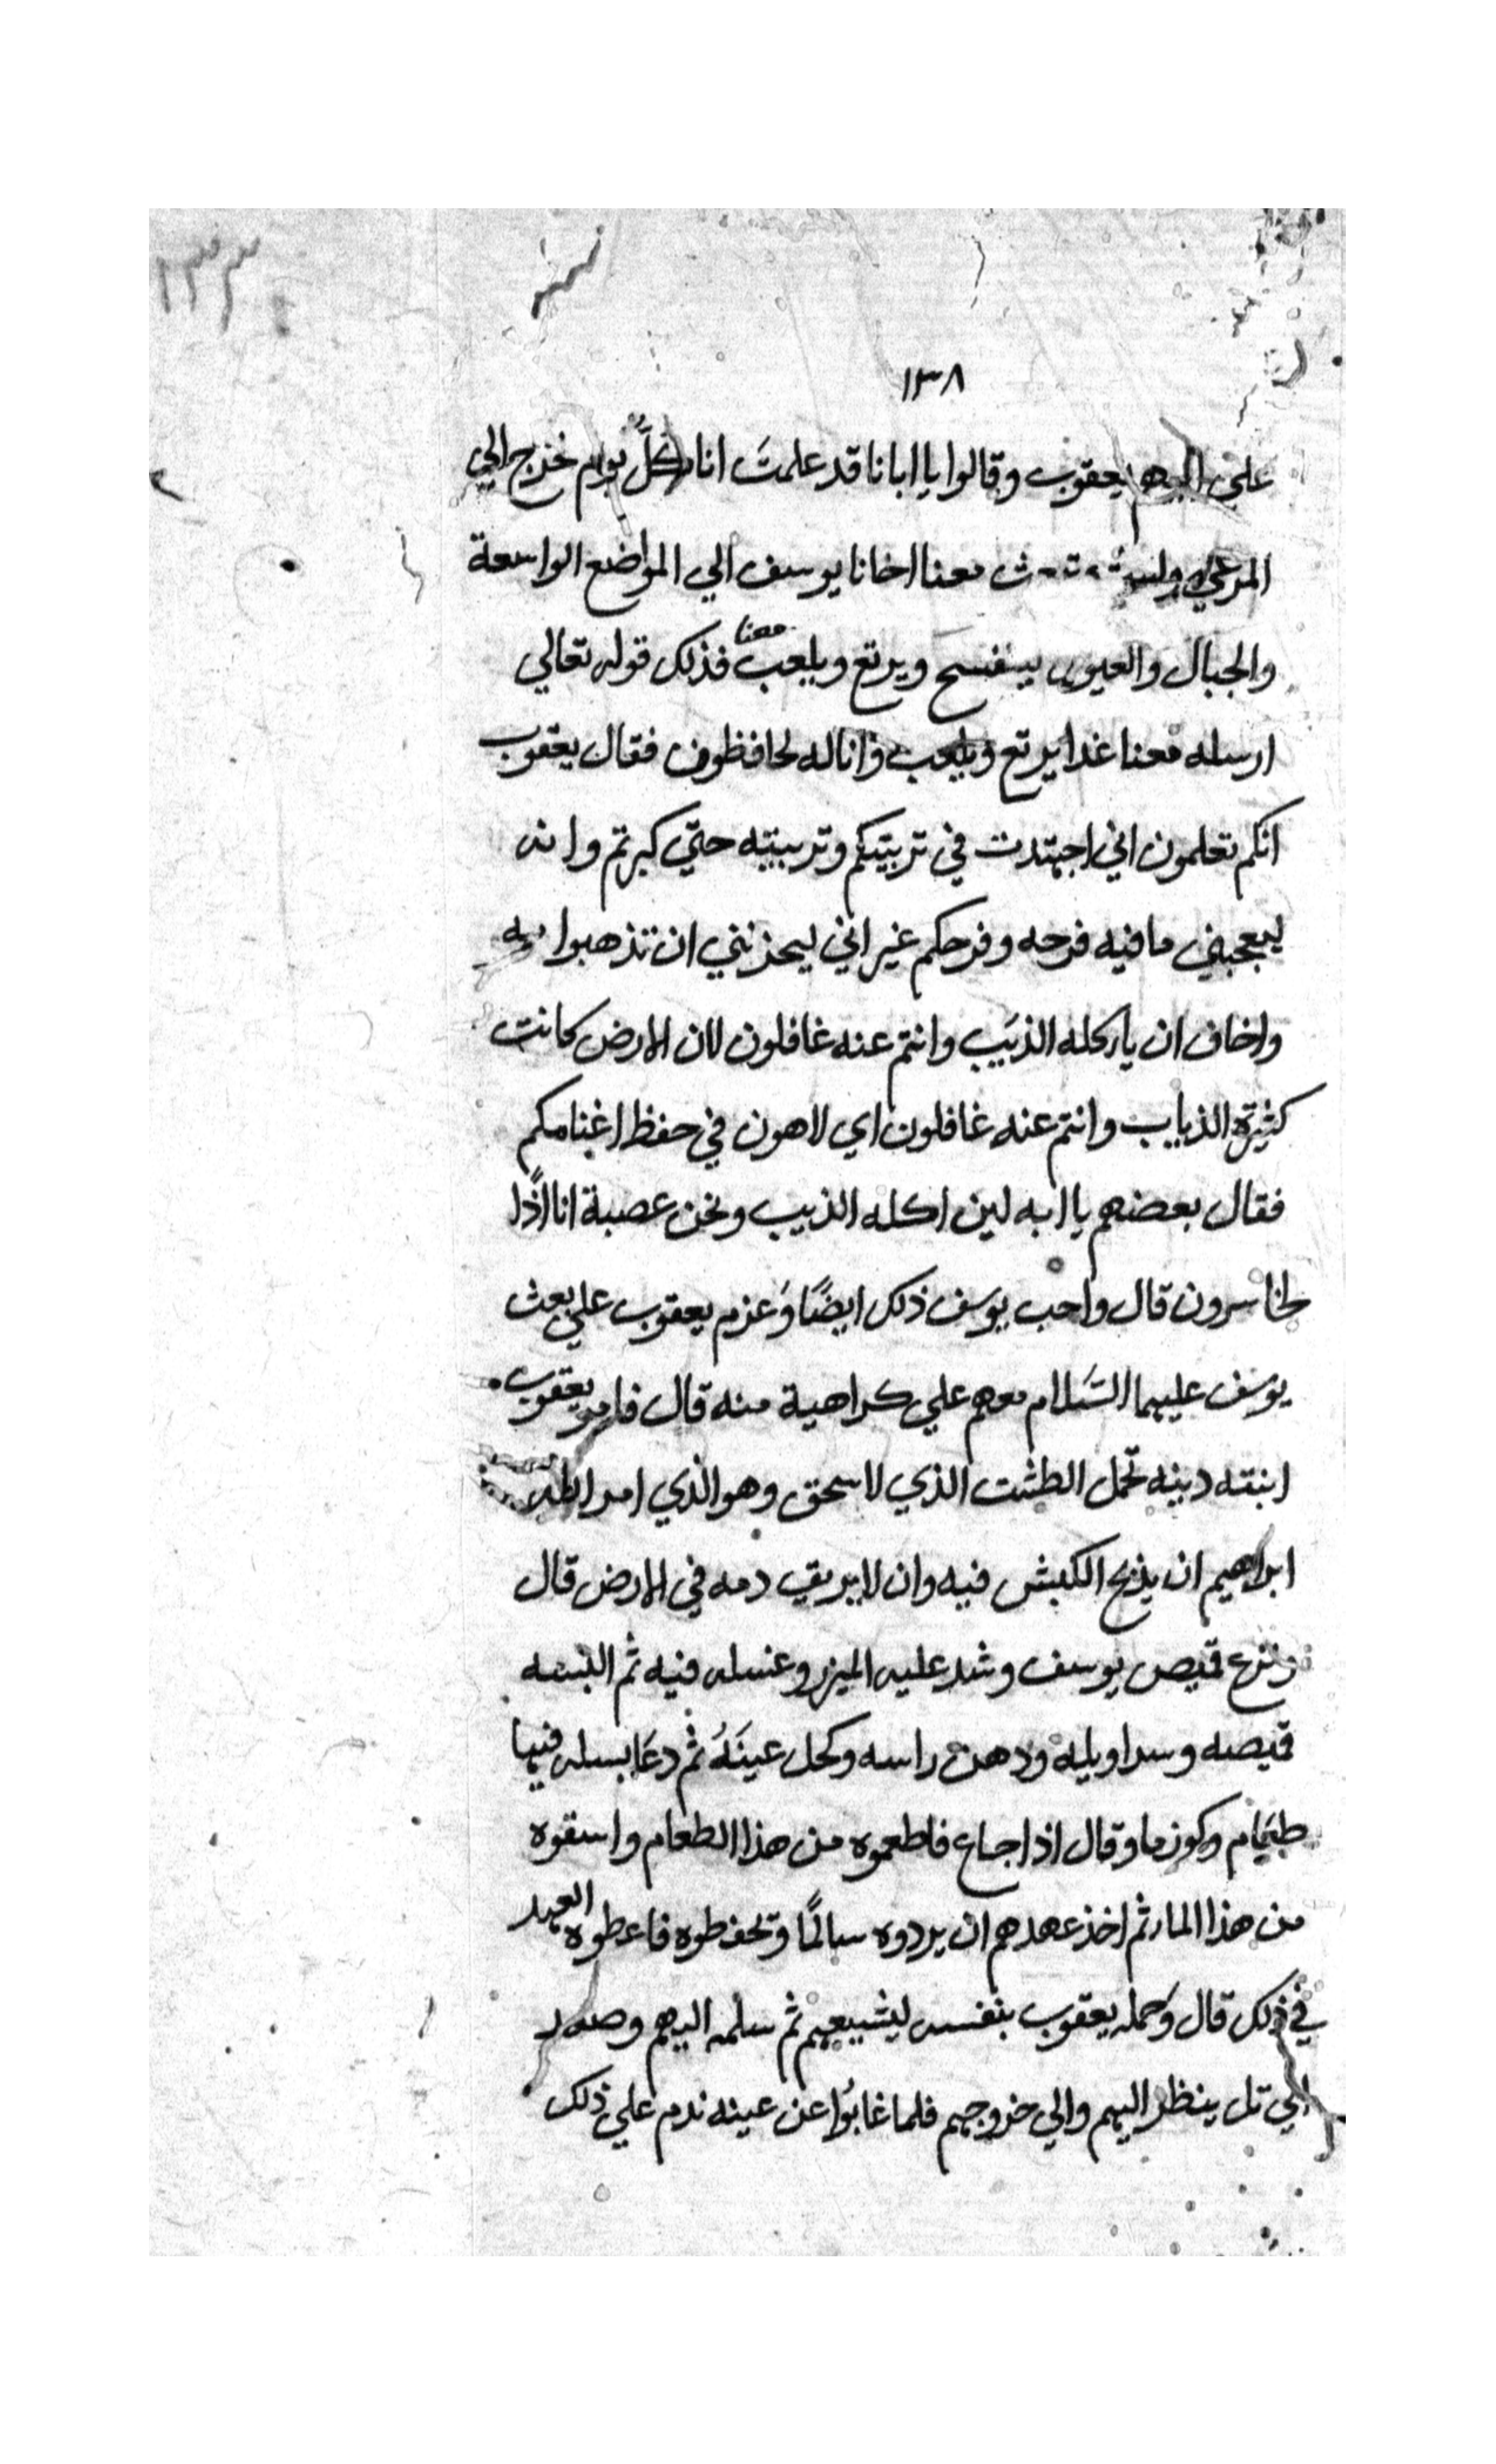 ١٣٣
١٣٨
علي ابيهم يعقوب وقالوا يا ابانا قد علمتَ انا كلَّ يوم نخرج الي
المرعي معنا اخانا يوسف الي المواضع الواسعة
والجبال والعيون يتفسح ويرتع ويلعب معنا فذلك قوله تعالي
ارسله معنا غدا يرتع ويلعب وانا له لحافظون فقال يعقوب
انكم تعلمون اني اجتهدت في تربيتكم وتربيته حتّي كبرتم وانه
ليعجبني ما فيه فرحه وفرحكم غير اني ليحزنني ان تذهبوا به
واخاف ان ياكله الذيب وانتم عنه غافلون لان الارض كانت
كثيرة الذياب وانتم عنه غافلون اي لاهون في حفظ اغنامكم
فقال بعضهم يا ابه لين اكله الذيب ونحن عصبة انا اذًا
لخاسرون قال واحب يوسف ذلك ايضًا وَعزم يعقوب علي بعث
يوسف عليهما السَلام معهم علي كراهية منه قال فامر يعقوب
ابنته دينه تحمل الطشت الذي لاسحق وهو الذي امر الله
ابراهيم ان يذبح الكبش فيه وان لا يريق دمه في الارض قال
ونزع قميص يوسف وشد عليه الميزر وغسله فيه ثم البسه
قميصه وسراويله ودهن راسه وكحل عينَهُ ثم دعَا بسله فيها
طعَام وكوز ماء وقال اذا جاع فاطعموه من هذا الطعام واسقوه
من هذا الماء ثم اخذ عهدهم ان يردوه سالمًا وتحفظوه فاعطوه العهد
في ذلك قال وَحمله يعقوب بنفسه ليشيعهم ثم سلمه اليهم وصعد
الي تل ينظر اليهم والي خروجهم فلما غابُوا عن عينه ندم علي ذلك